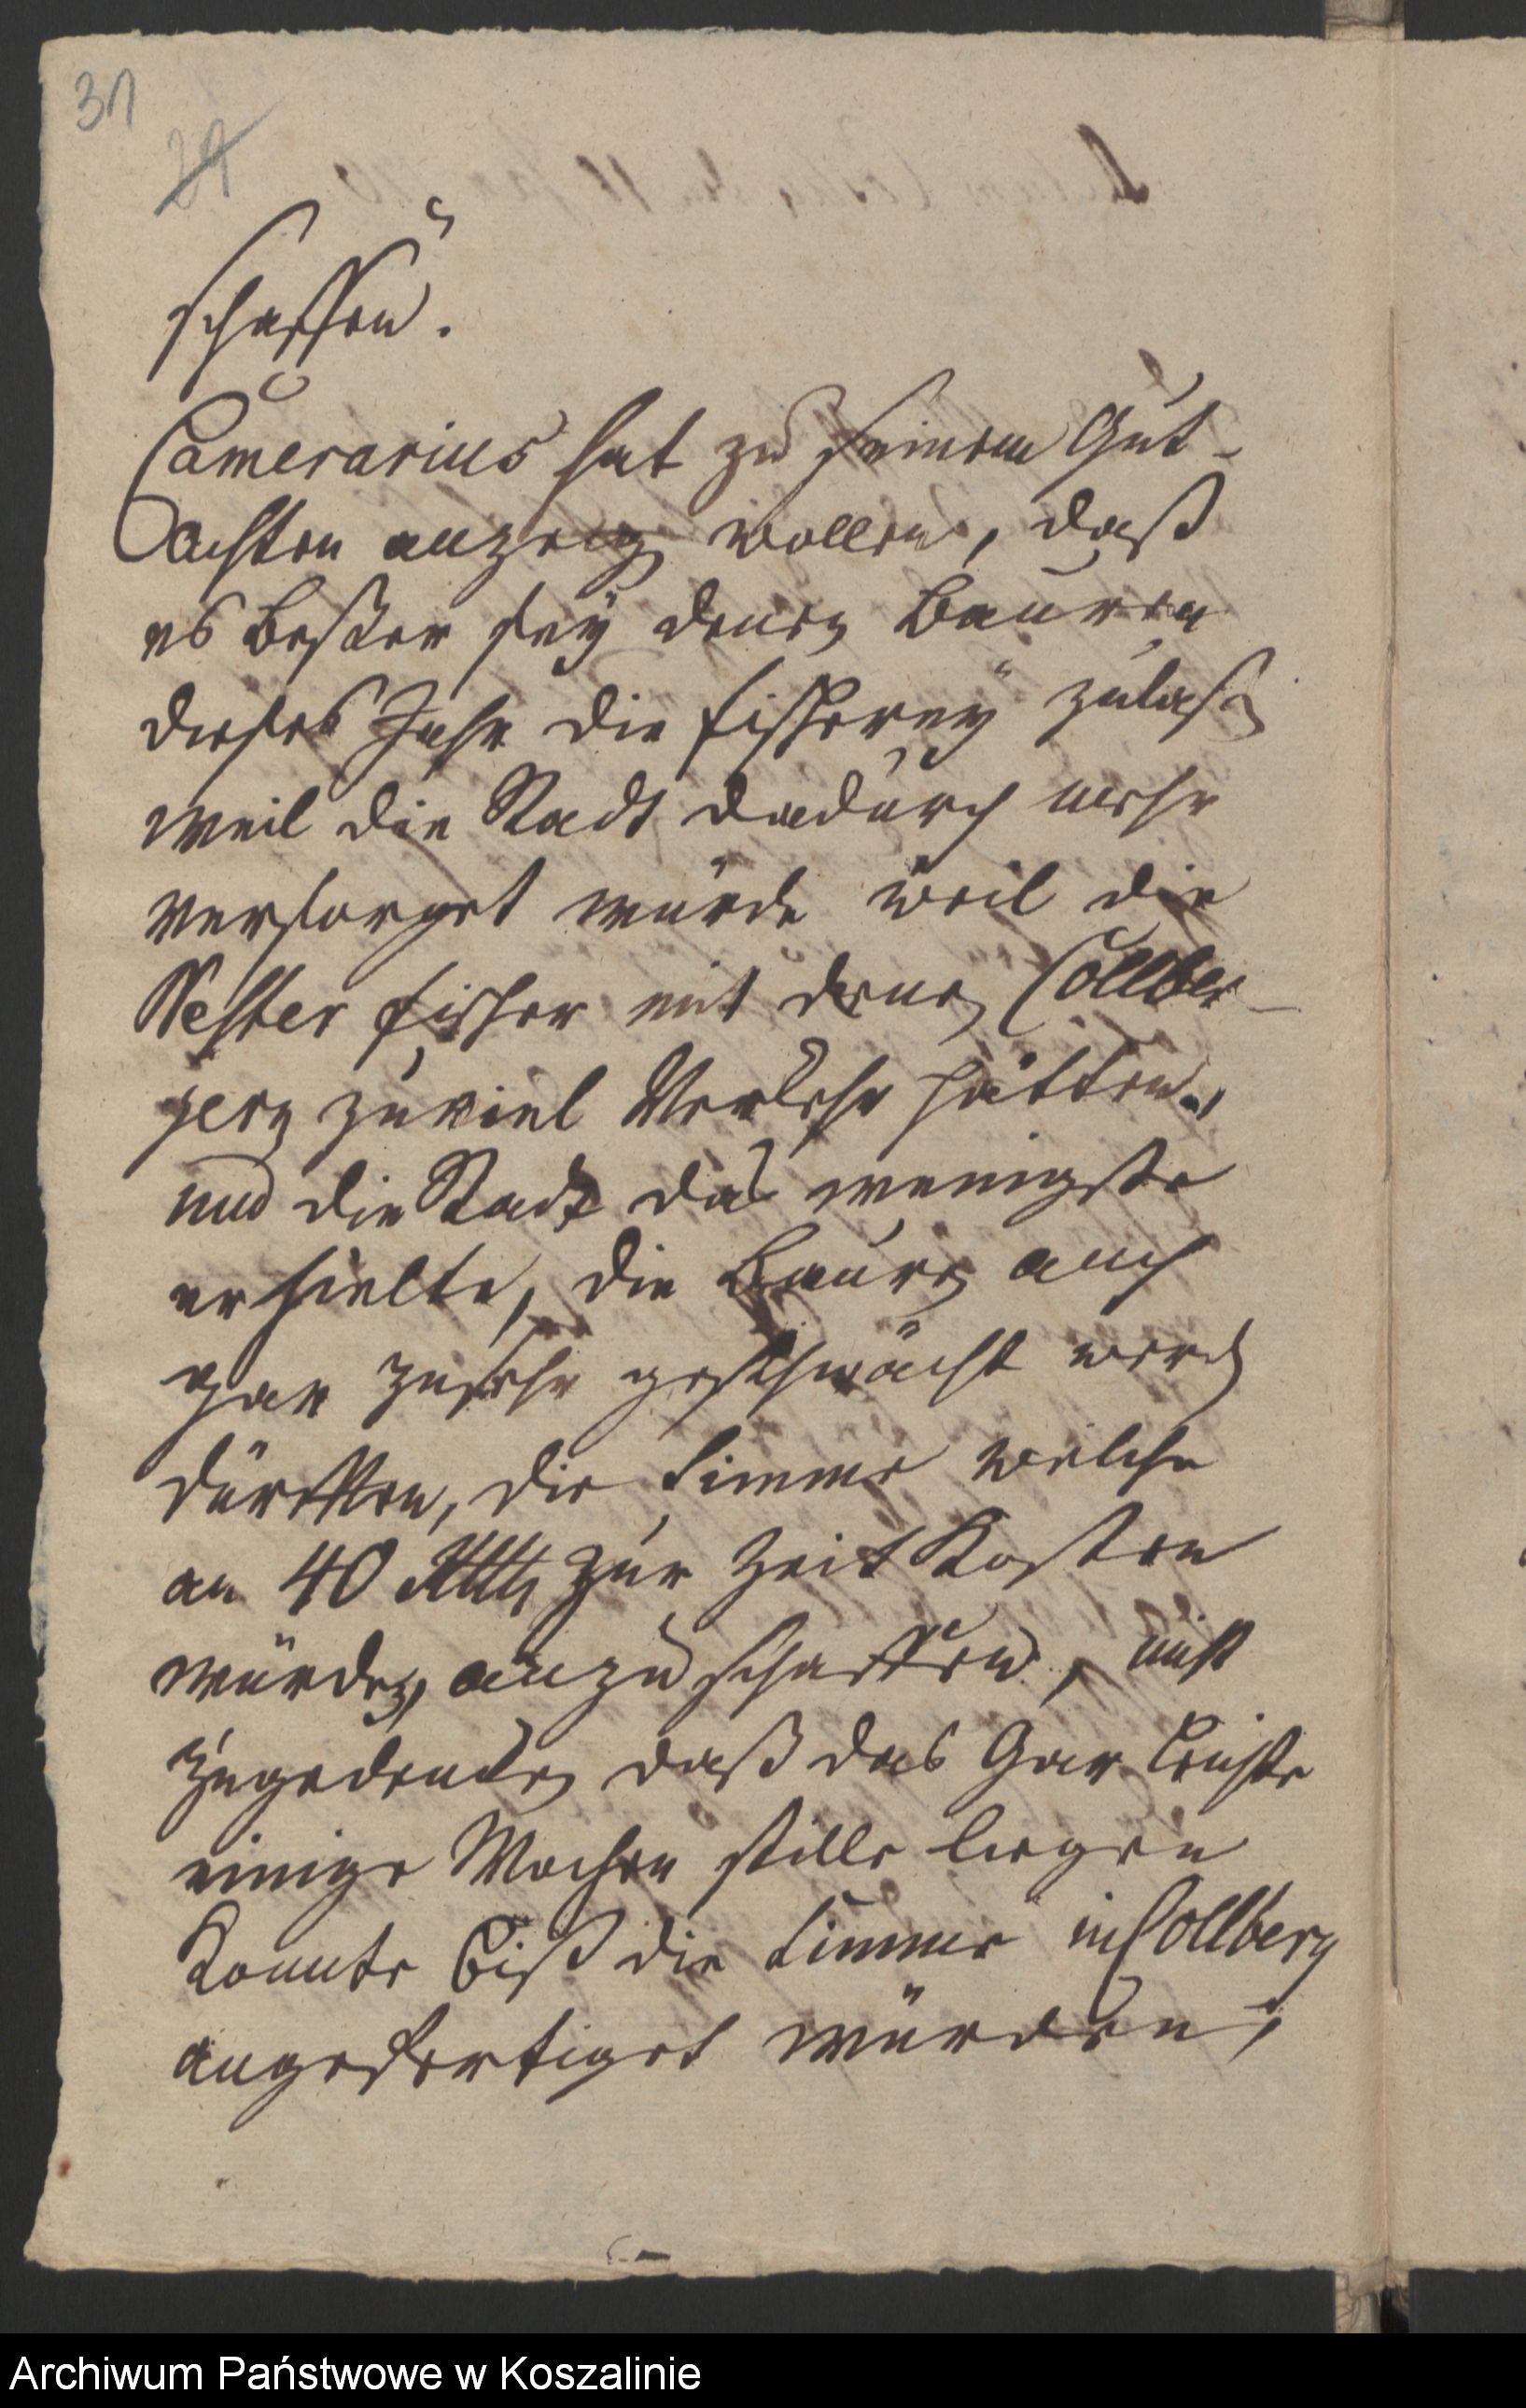 31
29
schaffen.
Camerarius hat zu seinem Gut-
Achten anzeigen wollen, daß
es Beßer sey denen Bauren
dieses Jahr die fischerey zulaßen
weil die Stadt dadurch mehr
versorget würde weil die
Nester fischer mit denen Collber-
gern zuviel Verkehr hätten,
und die Stadt das wenigste
erhielte, die Bauren auch
gar zusehr geschwächt werden
dürfften, die Limme welche
an 40 Rthlr zur Zeit Kosten
würden, anzuschaffen, nicht
zugedencken daß das Gar
einige Wochen stille liegen
Konnte biß die Limme in Collberg
angefertiget würden,
Archiwum Państwowe w Koszalinie